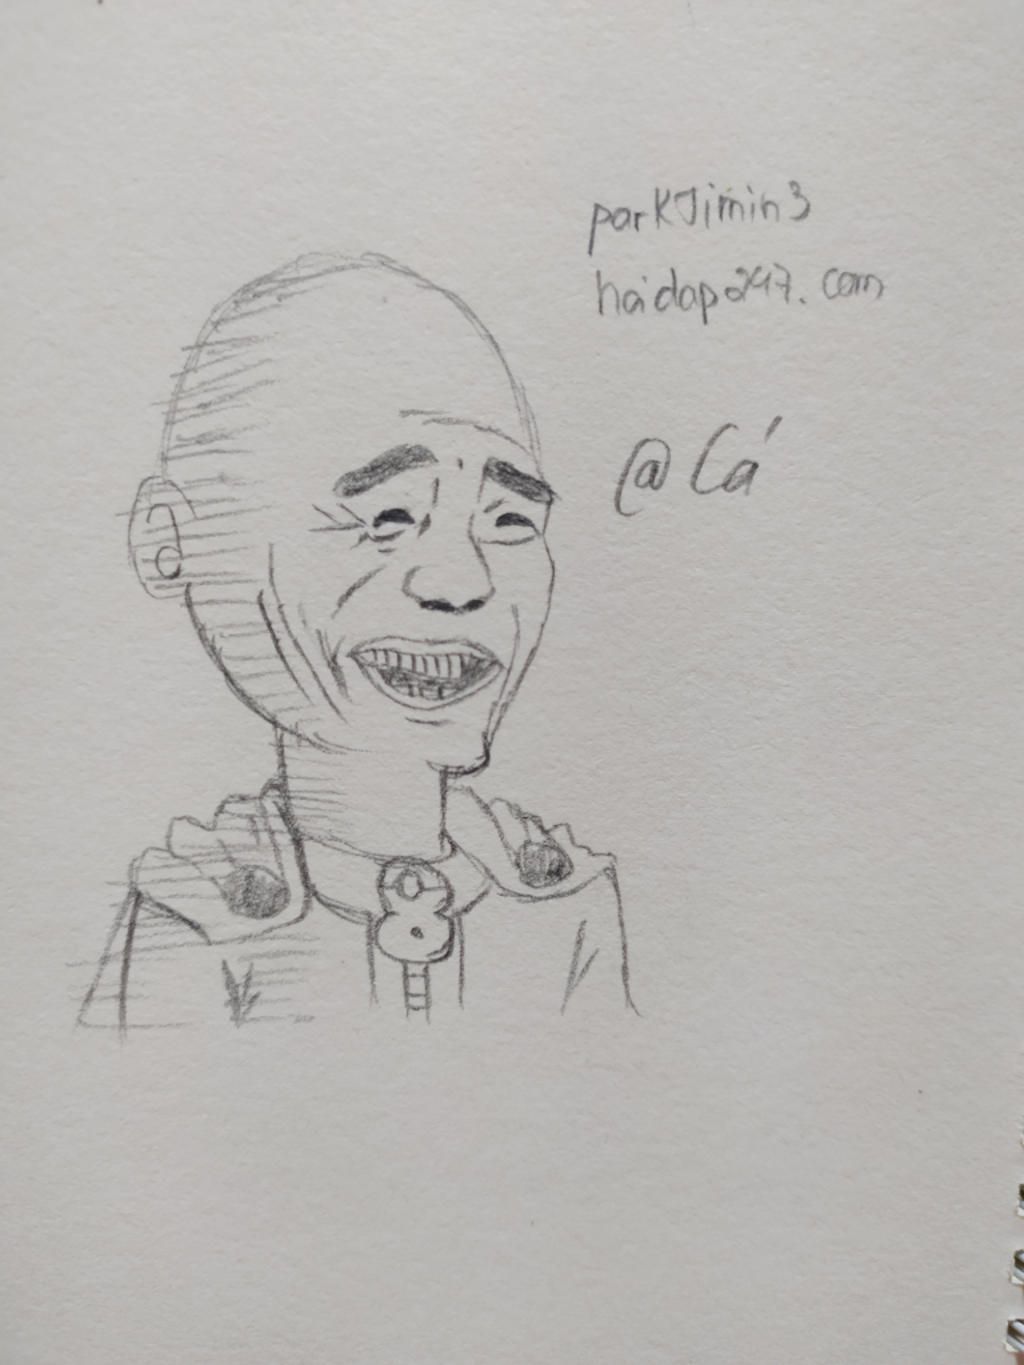 parkJimin3
hoidap247.com
@Cá